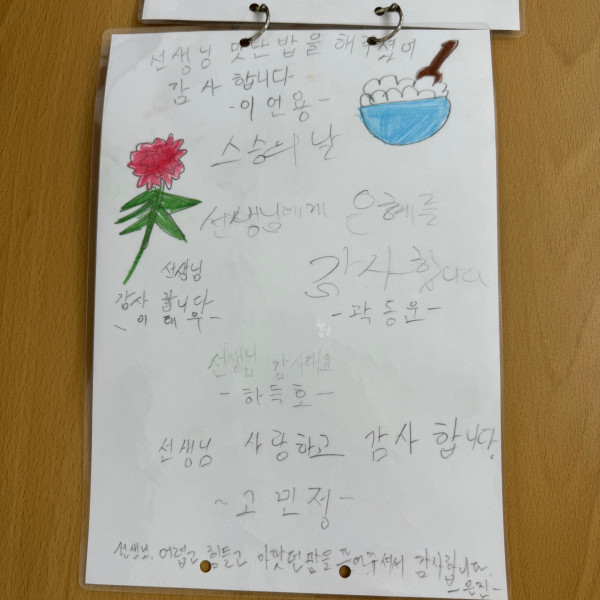 선생님 맛난밥을 해주셨어
감사합니다
-이언용-
스승의 날
선생님에게 은혜를
감사합니다
-곽동운-
선생님
감사합니다
-이태우-
선생님 감사해요
-하득호-
선생님 사랑하고 감사합니다.
~고민정-
선생님, 어렵고 힘들고 아팟던 을 주셔서 감사합니다.
-은진-